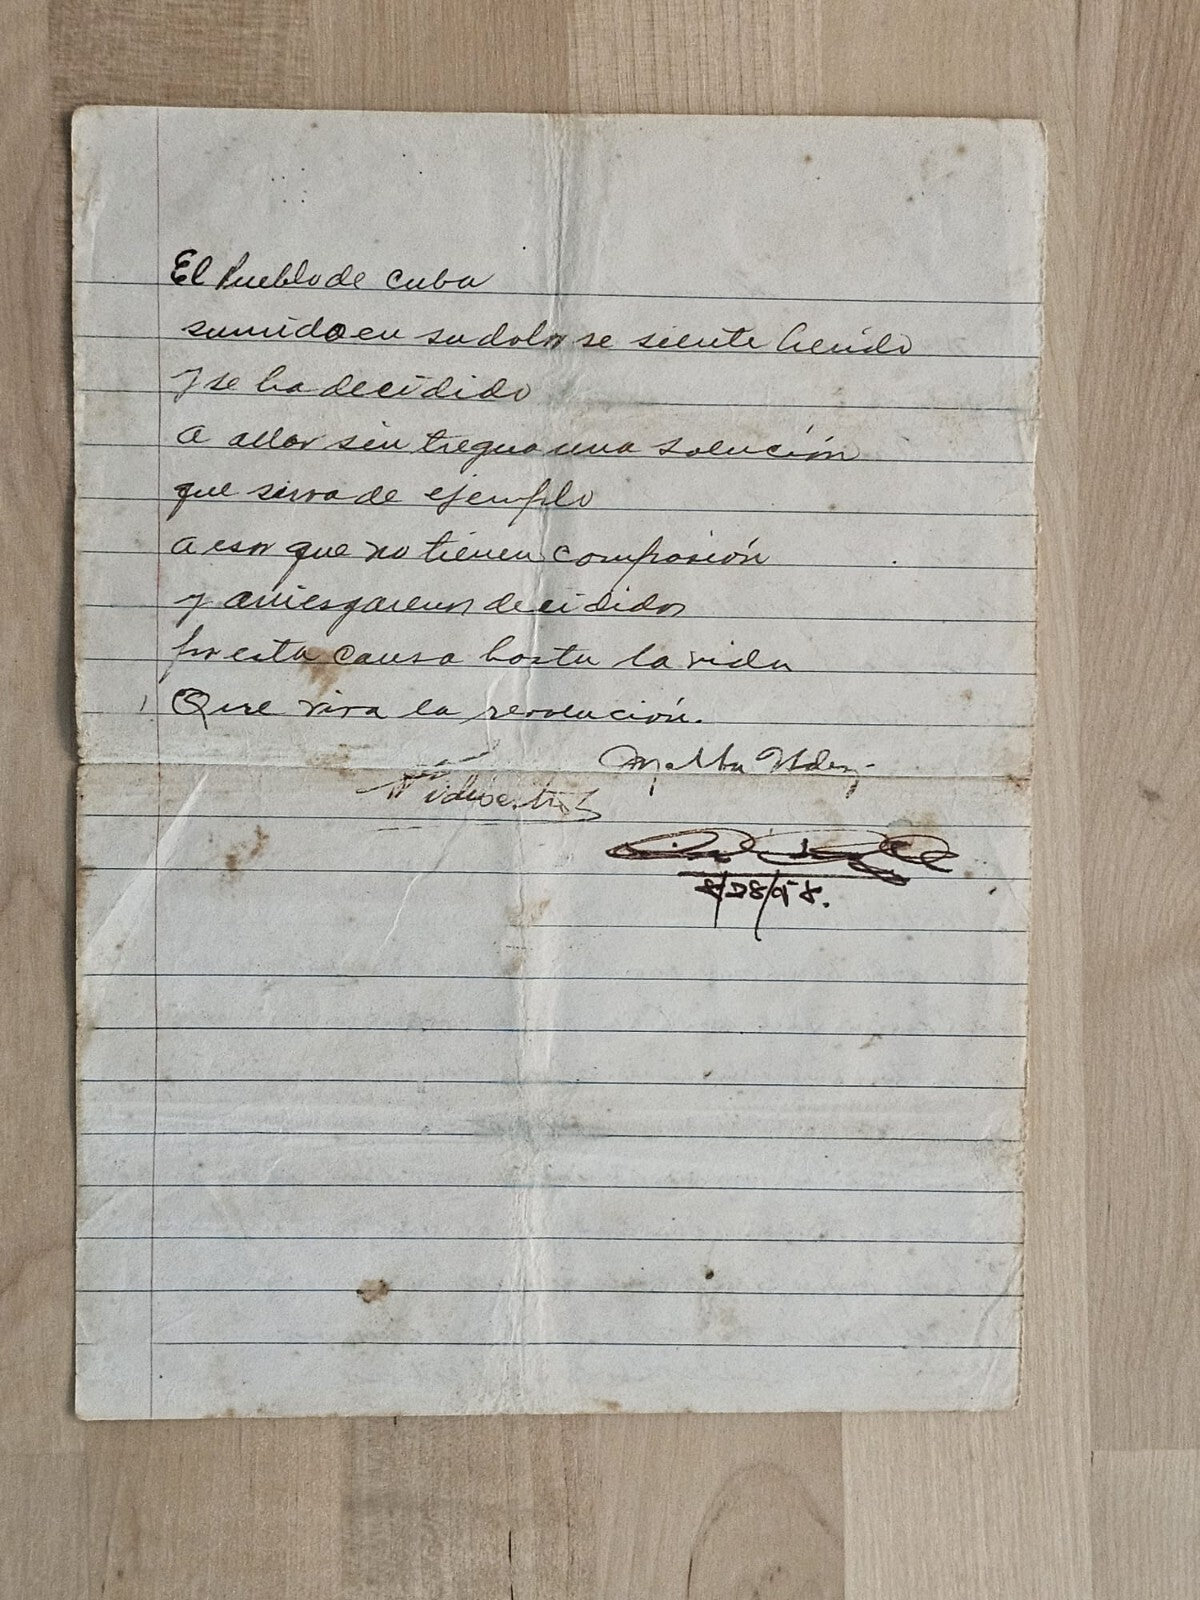 El Pueblo de Cuba
sumido en su dolor se siente herido
y se ha decidido
a allar sin tregua una solución
que sirva de ejemplo
a esos que no tienen compasión
y arriesgaremos decididos
por esta causa hasta la vida
Que viva la revolución.
Melba Hdez.
Fidel Castro
8/28/58.